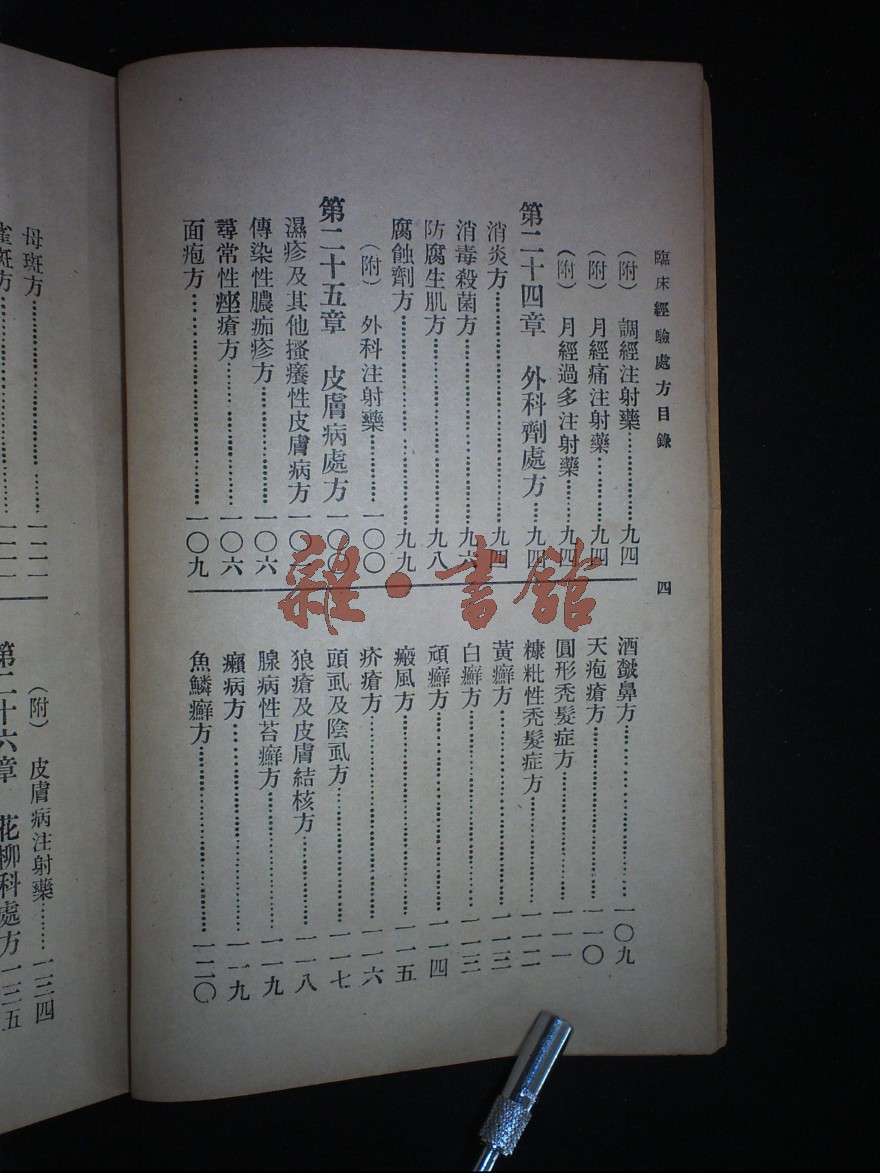 臨床經驗處方目錄
四
(附) 調經注射藥………九四
(附) 月經痛注射藥………九四
(附) 月經過多注射藥………九四
第二十四章 外科劑處方………九四
消炎方………九四
消毒殺菌方………九六
防腐生肌方………九八
腐蝕劑方………九九
(附) 外科注射藥………一〇〇
第二十五章 皮膚病處方………一〇〇
濕疹及其他搔癢性皮膚病方
傳染性膿痂疹方………一〇六
尋常性痤瘡方………一〇六
面疱方………一〇九
酒皶鼻方………一〇九
天疱瘡方………一一〇
圓形禿髮症方………一一一
糠粃性禿髮症方………一一二
黃癬方………一一三
白癬方………一一三
頑癬方………一一四
癜風方………一一五
疥瘡方………一一六
頭虱及陰虱方………一一七
狼瘡及皮膚結核方………一一八
腺病性苔癬方………一一九
癩病方………一一九
魚鱗癬方………一二〇
母斑方………一二一
雀斑方………
(附) 皮膚病注射藥………一三四
第二十六章 花柳科處方一三五
雜·書館